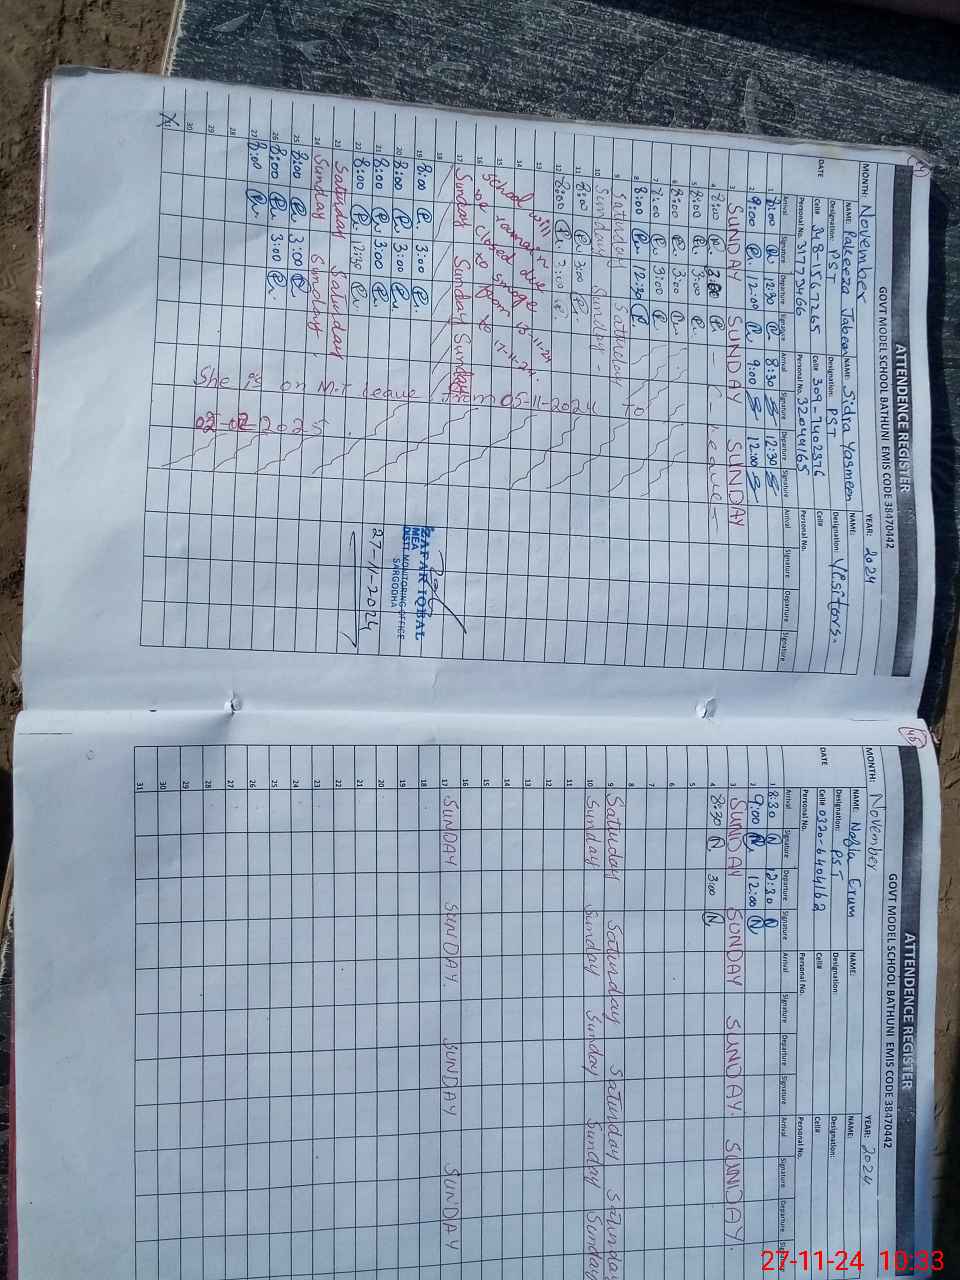 44
ATTENDENCE REGISTER
GOVT MODEL SCHOOL BATHUNI EMIS CODE 38470442
MONTH: November YEAR: 2024
NAME: Pakeeza Jabeen NAME: Sidra Yasmeen NAME:
Designation: PST Designation: PST Designation: Visitors.
DATE Cell# 348-1567265 Cell# 309-7402376 Cell#
Personal No. 31773466 Personal No. 32040165 Personal No.
Arrival Signature Departure Signature Arrival Signature Departure Signature Arrival Signature Departure Signature
1 8:00 12:30 8:30 12:30
2 9:00 12:00 9:00 12:00
3 SUNDAY SUNDAY SUNDAY
4 8:00 3:00 - Leave -
5 8:00 3:00
6 8:00 3:00
7 8:00 3:00
8 8:00 12:30
9 Saturday Saturday
10 Sunday Sunday -
11 8:00 3:00
12 8:00 3:00
13
14
15
16
School will
remain
closed due
to smoge
from 13-11-24
to 17-11-24.
17 Sunday Sunday Sunday
18
19 8:00 3:00
20 8:00 3:00
21 8:00 3:00
22 8:00 2:30
23 Saturday Saturday
24 Sunday Sunday
25 8:00 3:00
26 8:00 3:00
27 8:00
28
29
30
31
She is on M.T Leave from 05-11-2024 to
02-2025.
ZAFAR IQBAL
MEA
DISTT MONITORING OFFICE
SARGODHA
27-11-2024
45
ATTENDENCE REGISTER
GOVT MODEL SCHOOL BATHUNI EMIS CODE 38470442
MONTH: November YEAR: 2024
NAME: Erum NAME: NAME:
Designation: PST Designation: Designation:
DATE Cell# 0320-6404162 Cell# Cell#
Personal No. Personal No. Personal No.
Arrival Signature Departure Signature Arrival Signature Departure Signature Arrival Signature Departure
1 8:30 N 12:30 N
2 9:00 N 12:00 N
3 SUNDAY SUNDAY SUNDAY. SUNDAY.
4 8:30 N 3:00 N
5
6
7
8
9 Saturday Saturday Saturday Saturday
10 Sunday Sunday Sunday Sunday Sunday
11
12
13
14
15
16
17 SUNDAY SUNDAY. SUNDAY SUNDAY
18
19
20
21
22
23
24
25
26
27
28
29
30
31
27-11-24 10:33